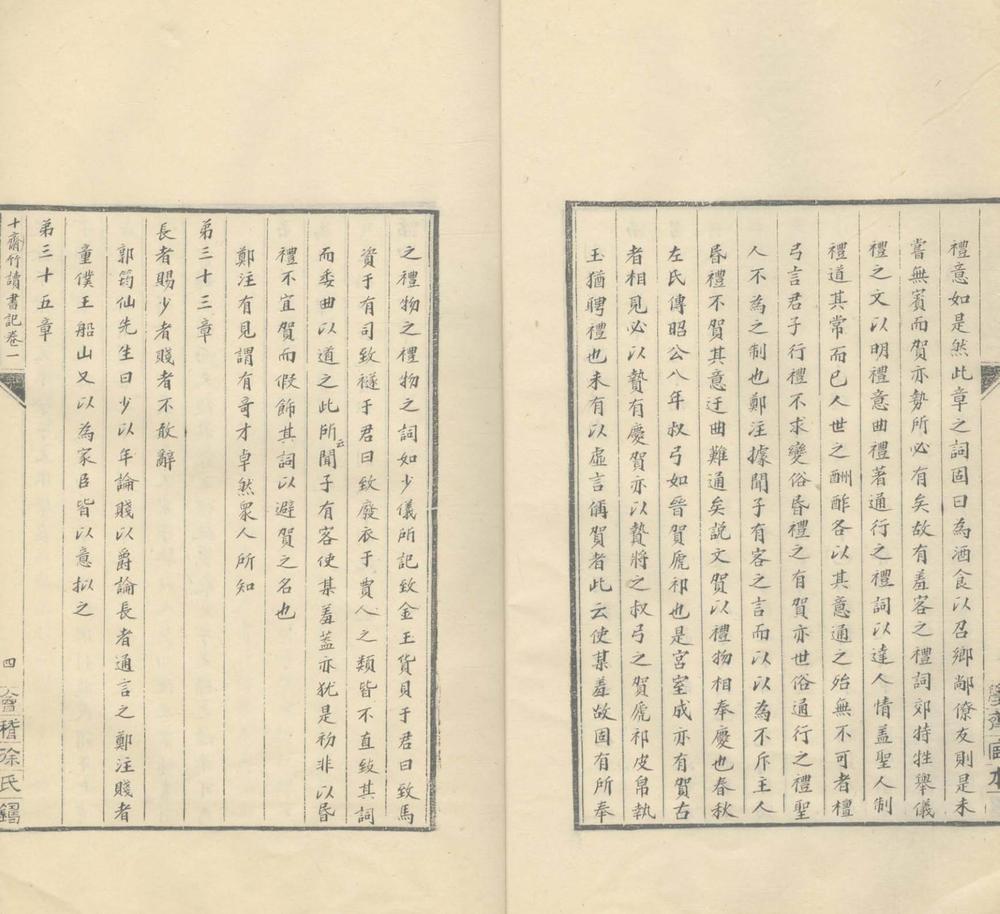 禮意如是然此章之詞固曰為酒食以召鄉鄰僚友則是未
嘗無賓而賀亦勢所必有矣故有羞客之禮詞郊特牲舉儀
禮之文以明禮意曲禮著通行之禮詞以達人情蓋聖人制
禮道其常而已人世之酬酢各以其意通之殆無不可者檀
弓言君子行禮不求變俗昏禮之有賀亦世俗通行之禮聖
人不為之制也鄭注據聞子有客之言而以以為不斥主人
昏禮不賀其意迂曲難通矣說文賀以禮物相奉慶也春秋
左氏傳昭公八年叔弓如晉賀虒祁也是宮室成亦有賀古
者相見必以贄有慶賀亦以贄將之叔弓之賀虒祁皮帛執
玉猶聘禮也未有以虛言偁賀者此云使某羞故固有所奉
之禮物之禮物之詞如少儀所記致金玉貨貝于君曰致馬
資于有司致襚于君曰致廢衣于賈人之類皆不直致其詞
而委曲以道之此所云聞子有客使某羞蓋亦猶是初非以昏
禮不宜賀而假飾其詞以避賀之名也
鄭注有見謂有奇才卓然眾人所知
第三十三章
長者賜少者賤者不敢辭
郭筠仙先生曰少以年論賤以爵論長者通言之鄭注賤者
童僕王船山又以為家臣皆以意拟之
第三十五章
十齋竹讀書記卷一
四
會稽徐氏鑄